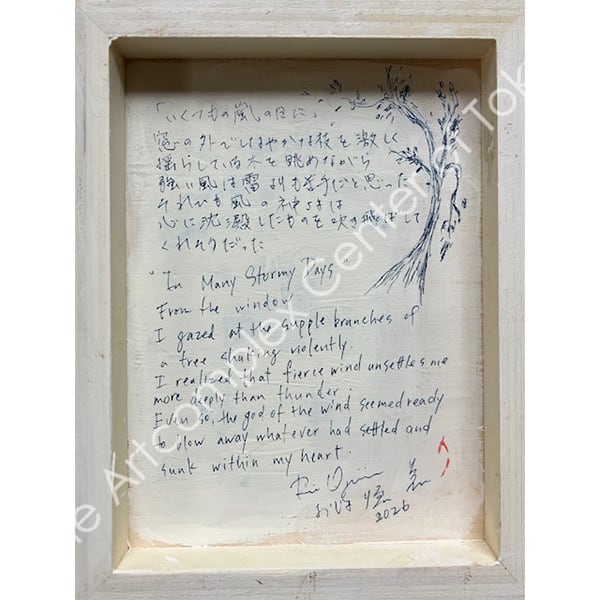 「いくつもの嵐の日に」
窓の外でしなやかな枝を激しく
揺らしている木を眺めながら
強い風は雷よりも苦手だと思った
それでも風の神さまは
心に沈澱したものを吹き飛ばして
くれそうだった
"In Many Stormy Days"
From the window
I gazed at the supple branches of
a tree shaking violently.
I realized that fierce wind unsettles me
more deeply than thunder.
Even so, the god of the wind seemed ready
to blow away whatever had settled and
sunk within my heart.
2026
The Artcomplex Center of Tok